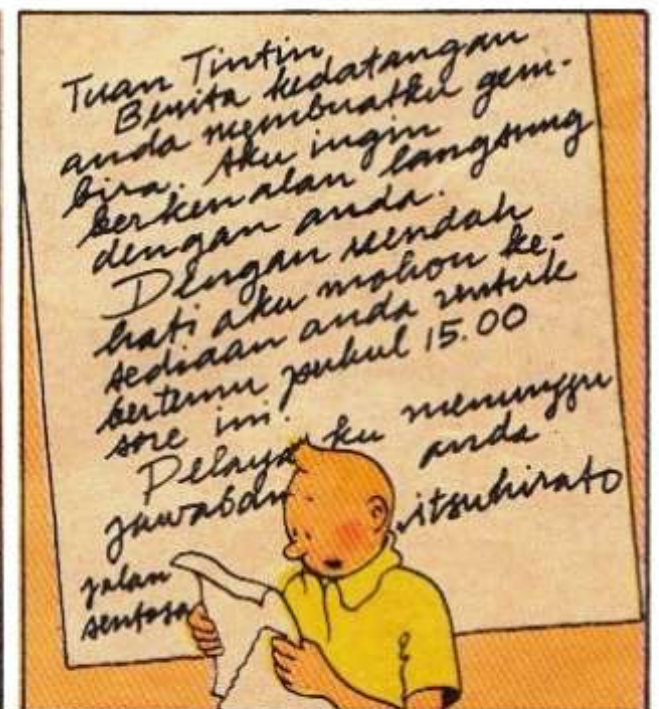 Tuan Tintin
Berita kedatangan
anda membuatku gem-
bira. Aku ingin
berkenalan langsung
dengan anda.
Dengan rendah
hati aku mohon ke-
sediaan anda untuk
bertemu pukul 15.00
sore ini.
Pelaya ku menunggu
jawabdn anda
itsuhirato
jalan
sentosa